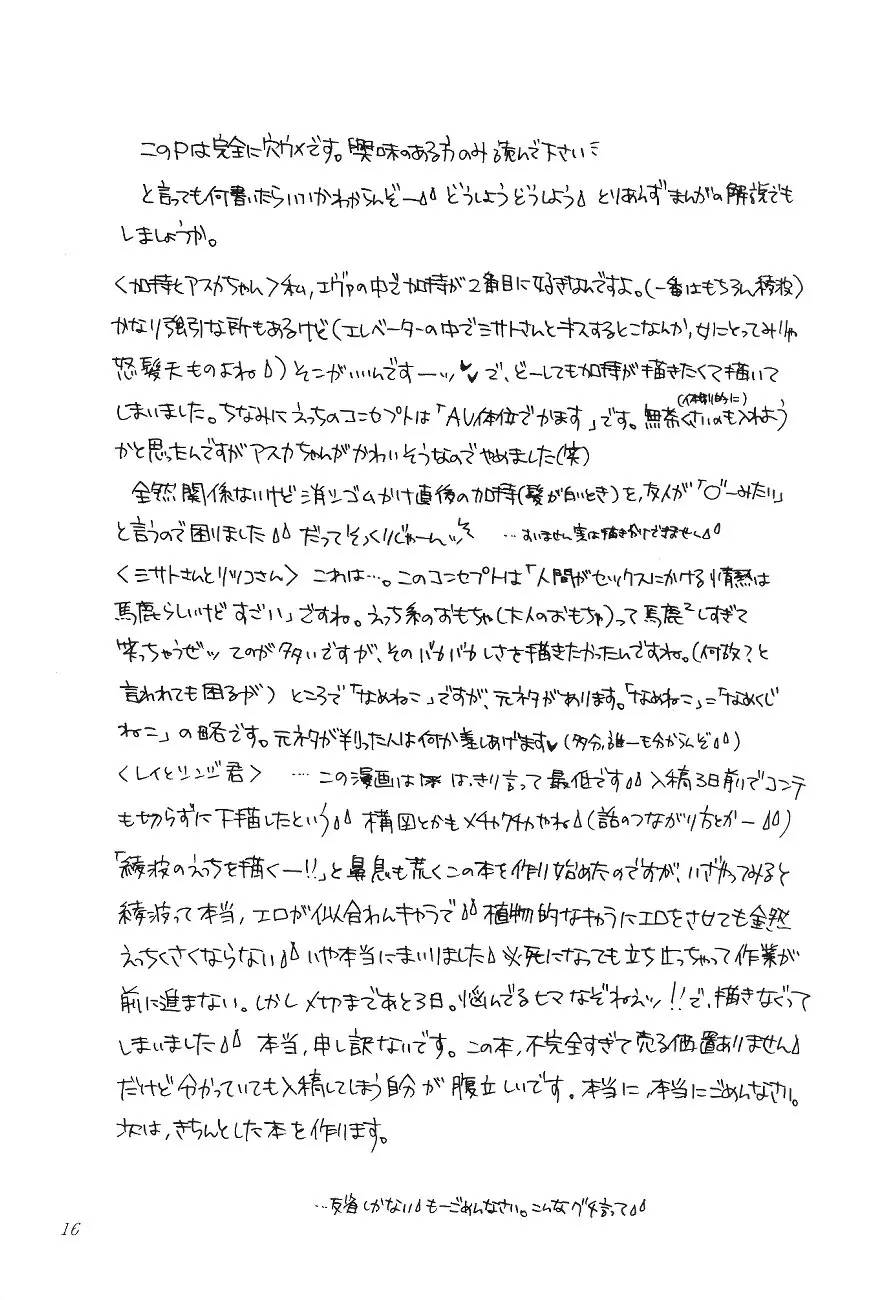 このPは完全に穴ウメです。興味のある方のみ読んで下さいミ
と言っても何書いたらいいかわからんぞー どうしようどうしよう とりあえずまんがの解説でも
しましょうか。
〈加持とアスカちゃん〉私,エヴァの中で加持が2番目に好きなんですよ。(一番はもちろん綾波)
かなり強引な所もあるけど(エレベーターの中でミサトさんとキスするとこなんか,女にとってみりゃ
怒髪天ものよね)そこがいいんですーッ♥♥ で、どーしても加持が描きたくて描いて
しまいました。ちなみにえっちのコンセプトは「AV体位でかます」です。無茶くさいのも入れよう
かと思ったんですがアスカちゃんがかわいそうなのでやめました(笑)
全然関係ないけど消シゴムかけ直後の加持(髪が白いとき)を,友人が「○゛ーみたい」
と言うので困りました だってそっくりじゃーんッ …すいません実は描き分けできません
〈ミサトさんとリツコさん〉 これは…。このコンセプトは「人間がセックスにかける情熱は
馬鹿らしいけどすごい」ですね。えっち系のおもちゃ(大人のおもちゃ)って馬鹿²しすぎて
笑っちゃうぜッ てのが多いですが、そのバカバカしさを描きたかったんですね。(何故?と
言われても困るが) ところで「なめねこ」ですが、元ネタがあります。「なめねこ」=「なめくじ
ねこ」の略です。元ネタが判った人は何か差しあげます♥(多分,誰一も分からんぞ)
〈レイとシンジ君〉 …この漫画は はっきり言って最低です 入稿3日前でコンテ
も切らずに下描したという 構図とかもメチャクチャやね(話のつながり方とかー)
「綾波のえっちを描くー!!」と鼻息も荒くこの本を作り始めたのですが、いざやってみると
綾波って本当,エロが似合わんキャラで 植物的なキャラにエロをさせても全然
えっちくさくならない いや本当にまいりました 必死になっても立ち止っちゃって作業が
前に進まない。しかし〆切まであと3日。悩んでるヒマなぞねえッ!!で、描きなぐって
しまいました 本当,申し訳ないです。この本,不完全すぎて売る価置ありません
だけど分かっていても入稿してしまう自分が腹立しいです。本当に,本当にごめんなさい。
次は,きちんとした本を作ります。
…反省しかない もーごめんなさい。こんなグチ言って
16